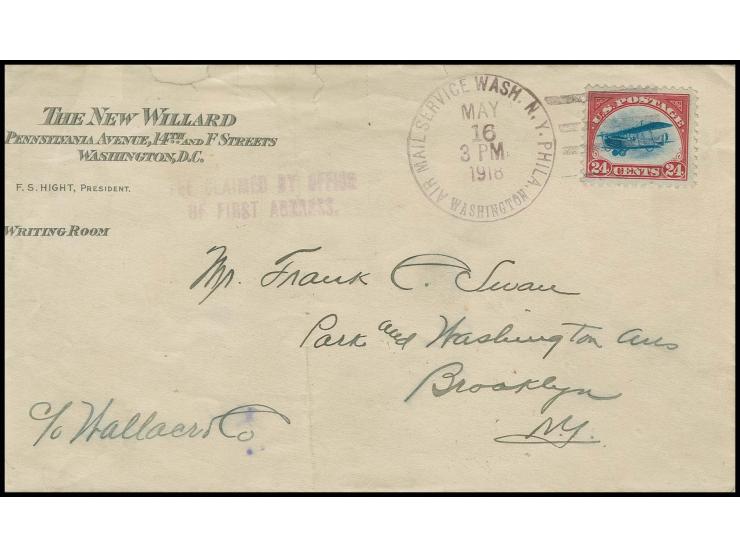 THE NEW WILLARD
PENNSYLVANIA AVENUE, 14TH AND F STREETS
WASHINGTON, D.C.
F. S. HIGHT, PRESIDENT.
WRITING ROOM
FEE CLAIMED BY OFFICE
OF FIRST ADDRESS.
AIR MAIL SERVICE WASH. N. Y. PHILA.
MAY
16
3 PM.
1918
WASHINGTON
U.S. POSTAGE
24 CENTS 24
Mr. Frank C. Swan
Park and Washington Avs
Brooklyn
N.Y.
c/o Co